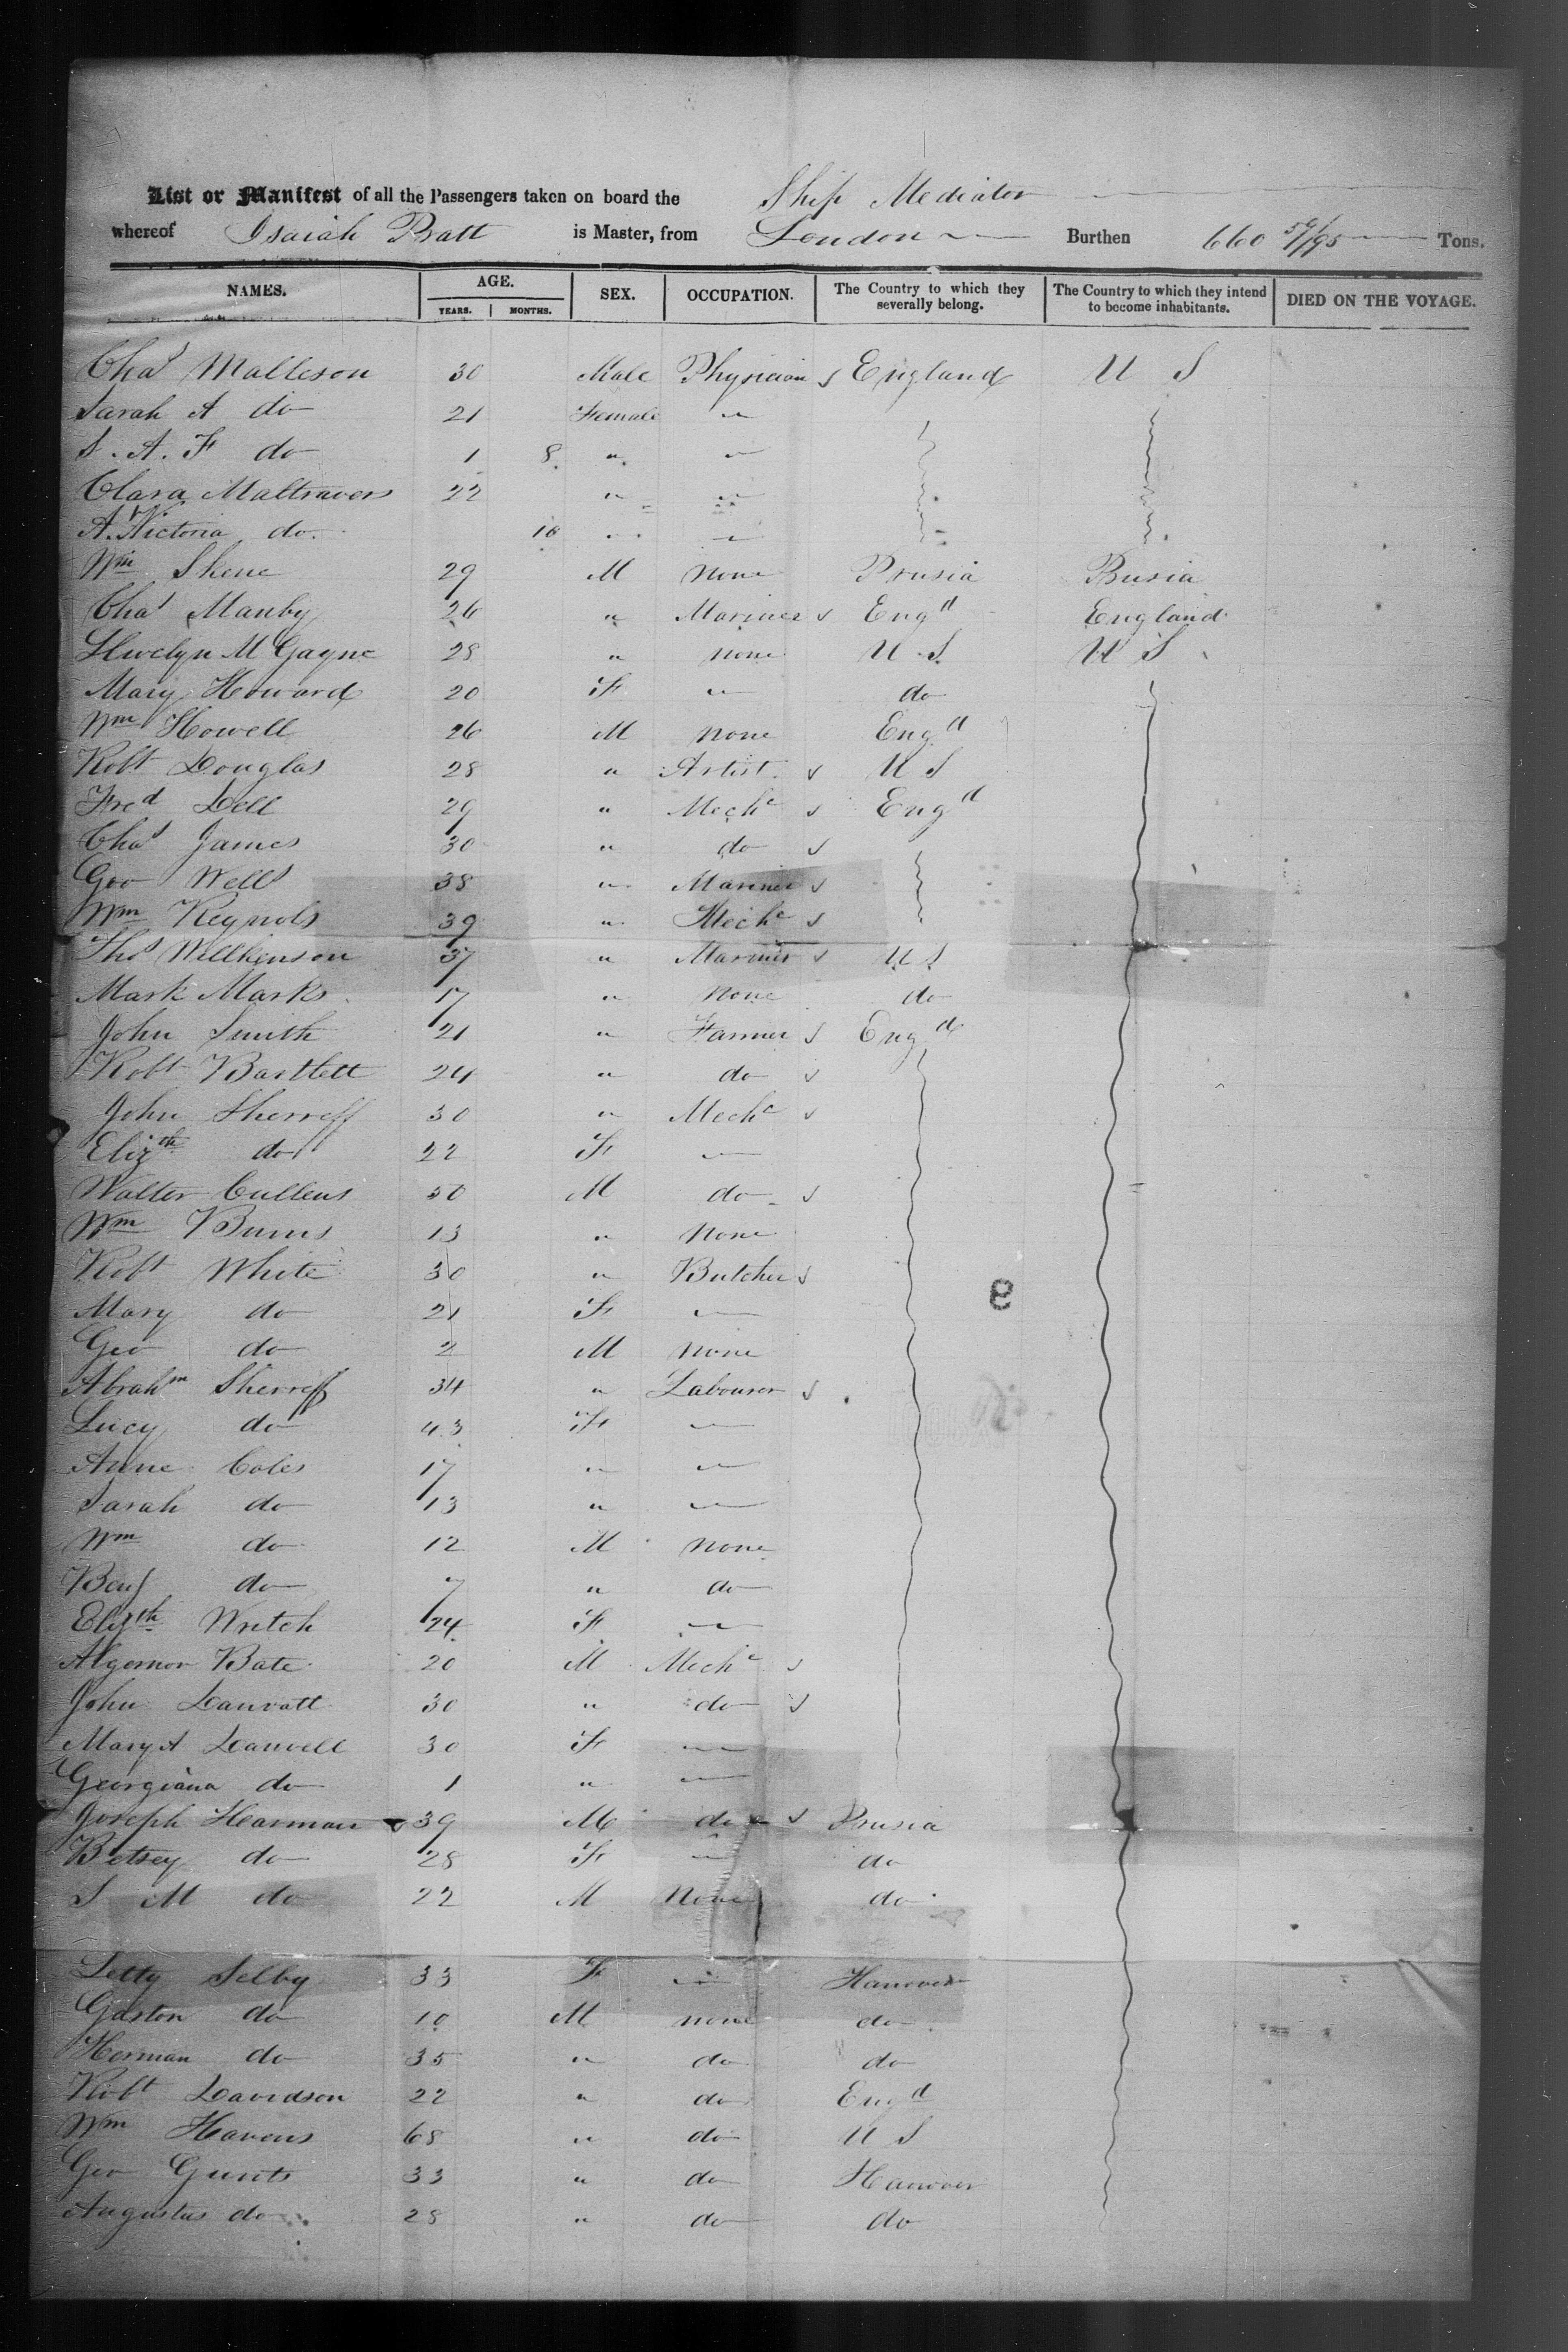 List or Manifest of all the Passengers taken on board the Ship Mediator
whereof Isaiah Pratt is Master, from London Burthen 660 Tons.
NAMES. AGE. YEARS. MONTHS. SEX. OCCUPATION. The Country to which they severally belong. The Country to which they intend to become inhabitants. DIED ON THE VOYAGE.
Chas Malleson 30 Male Physician England U S
Sarah A do 21 Female "
S. A. F do 1 8 " "
Clara Maltravers 22 " "
A. Victoria do. 10 " "
Wm Shene 29 M none Prusia Prusia
Chas Manby 26 " Mariner Engd England
Llwelyn M Gayne 28 " none U S U S
Mary Howard 20 F " do
Wm Howell 26 M none Engd
Robt Douglas 28 " Artist U S
Fred Dell 29 " Mechc Engd
Chas James 30 " do
Geo Wells 38 " Mariner
Wm Reynols 39 " Mechc
Thos Willkinson 37 " Mariner U S
Mark Marks 17 " none do
John Smith 21 " Farmer Engd
Robt Bartlett 24 " do
John Sherreff 30 " Mechc
Elizth do 22 F —
Walter Cullens 30 M do
Wm Burns 13 " none
Robt White 30 " Butcher
Mary do 21 F —
Geo do 2 M none
Abrahm Sherreff 34 " Labourer
Lucy do 43 F —
Anne Coles 17 " —
Sarah do 13 " —
Wm do 12 M none
Benj do 7 " do
Elizth Writch 24 F —
Algernon Bate 20 M Mechc
John Danvatt 30 " do
Mary A Danvell 30 F —
Georgiana do 1 " —
Joseph Harman 39 M do Prusia
Betsey do 28 F — do
S M do 22 M None do
Letty Selby 33 F — Hanover
Gaston do 10 M none do
Herman do 35 " do do
Robt Davidson 22 " do Engd
Wm Havens 68 " do U S
Geo Gunts 33 " do Hanover
Augustus do 28 " do do